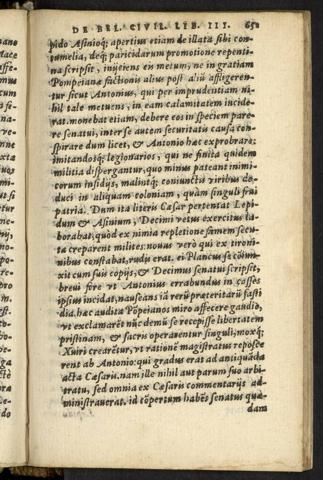 DE BEL. CIVIL. LIB. III. 650
pido Asinioq; apertius etiam de illata sibi con-
tumelia, deq; paricidarum promotione repenti-
na scripsit, inijciens en metum, ne in gratiam
Pompeianæ factionis alius post aliũ affligeren-
tur sicut Antonius, qui per imprudentiam ni-
hil tale metuens, in eam calamitatem incide-
rat. monebat etiam, debere eos in speciem pare-
re senatui, inter se autem securitatis causa con-
spirare dum licet, & Antonio hæc exprobrare:
imitandosq; legionarios, qui ne finita quidem
militia dispergantur, quo minus pateant inimi-
corum insidijs, malintq; coniunctis viribus de-
duci in aliquam coloniam, quàm singuli frui
patria. Dum ita literis Cæsar pertentat Lepi-
dum & Asinium, Decimi vetus exercitus la-
borabat, quòd ex nimia repletione famem secu-
ta creparent milites: nouus verò qui ex tironi-
nibus constabat, rudis erat. ei Plancus se cõiun-
xit cum suis copijs, & Decimus senatui scripsit,
breui fore vt Antonius errabundus in casses
ipsius incidat, nauseans iã rerũ præteritarũ fasti
dia. hæc audita Põpeianos miro affecere gaudio,
vt exclamarēt nũc demũ se recepisse libertatem
pristinam, & sacris operarentur singuli, moxq;
Xuiri crearētur, vt rationē magistratus reposce
rent ab Antonio: qui gradus erat ad antiquãda
acta Cæsaris. nam ille nihil aut parum suo arbi-
tratu, sed omnia ex Cæsaris commentarijs ad-
ministrauerat. id cõpertum habēs senatus quæ-
dam